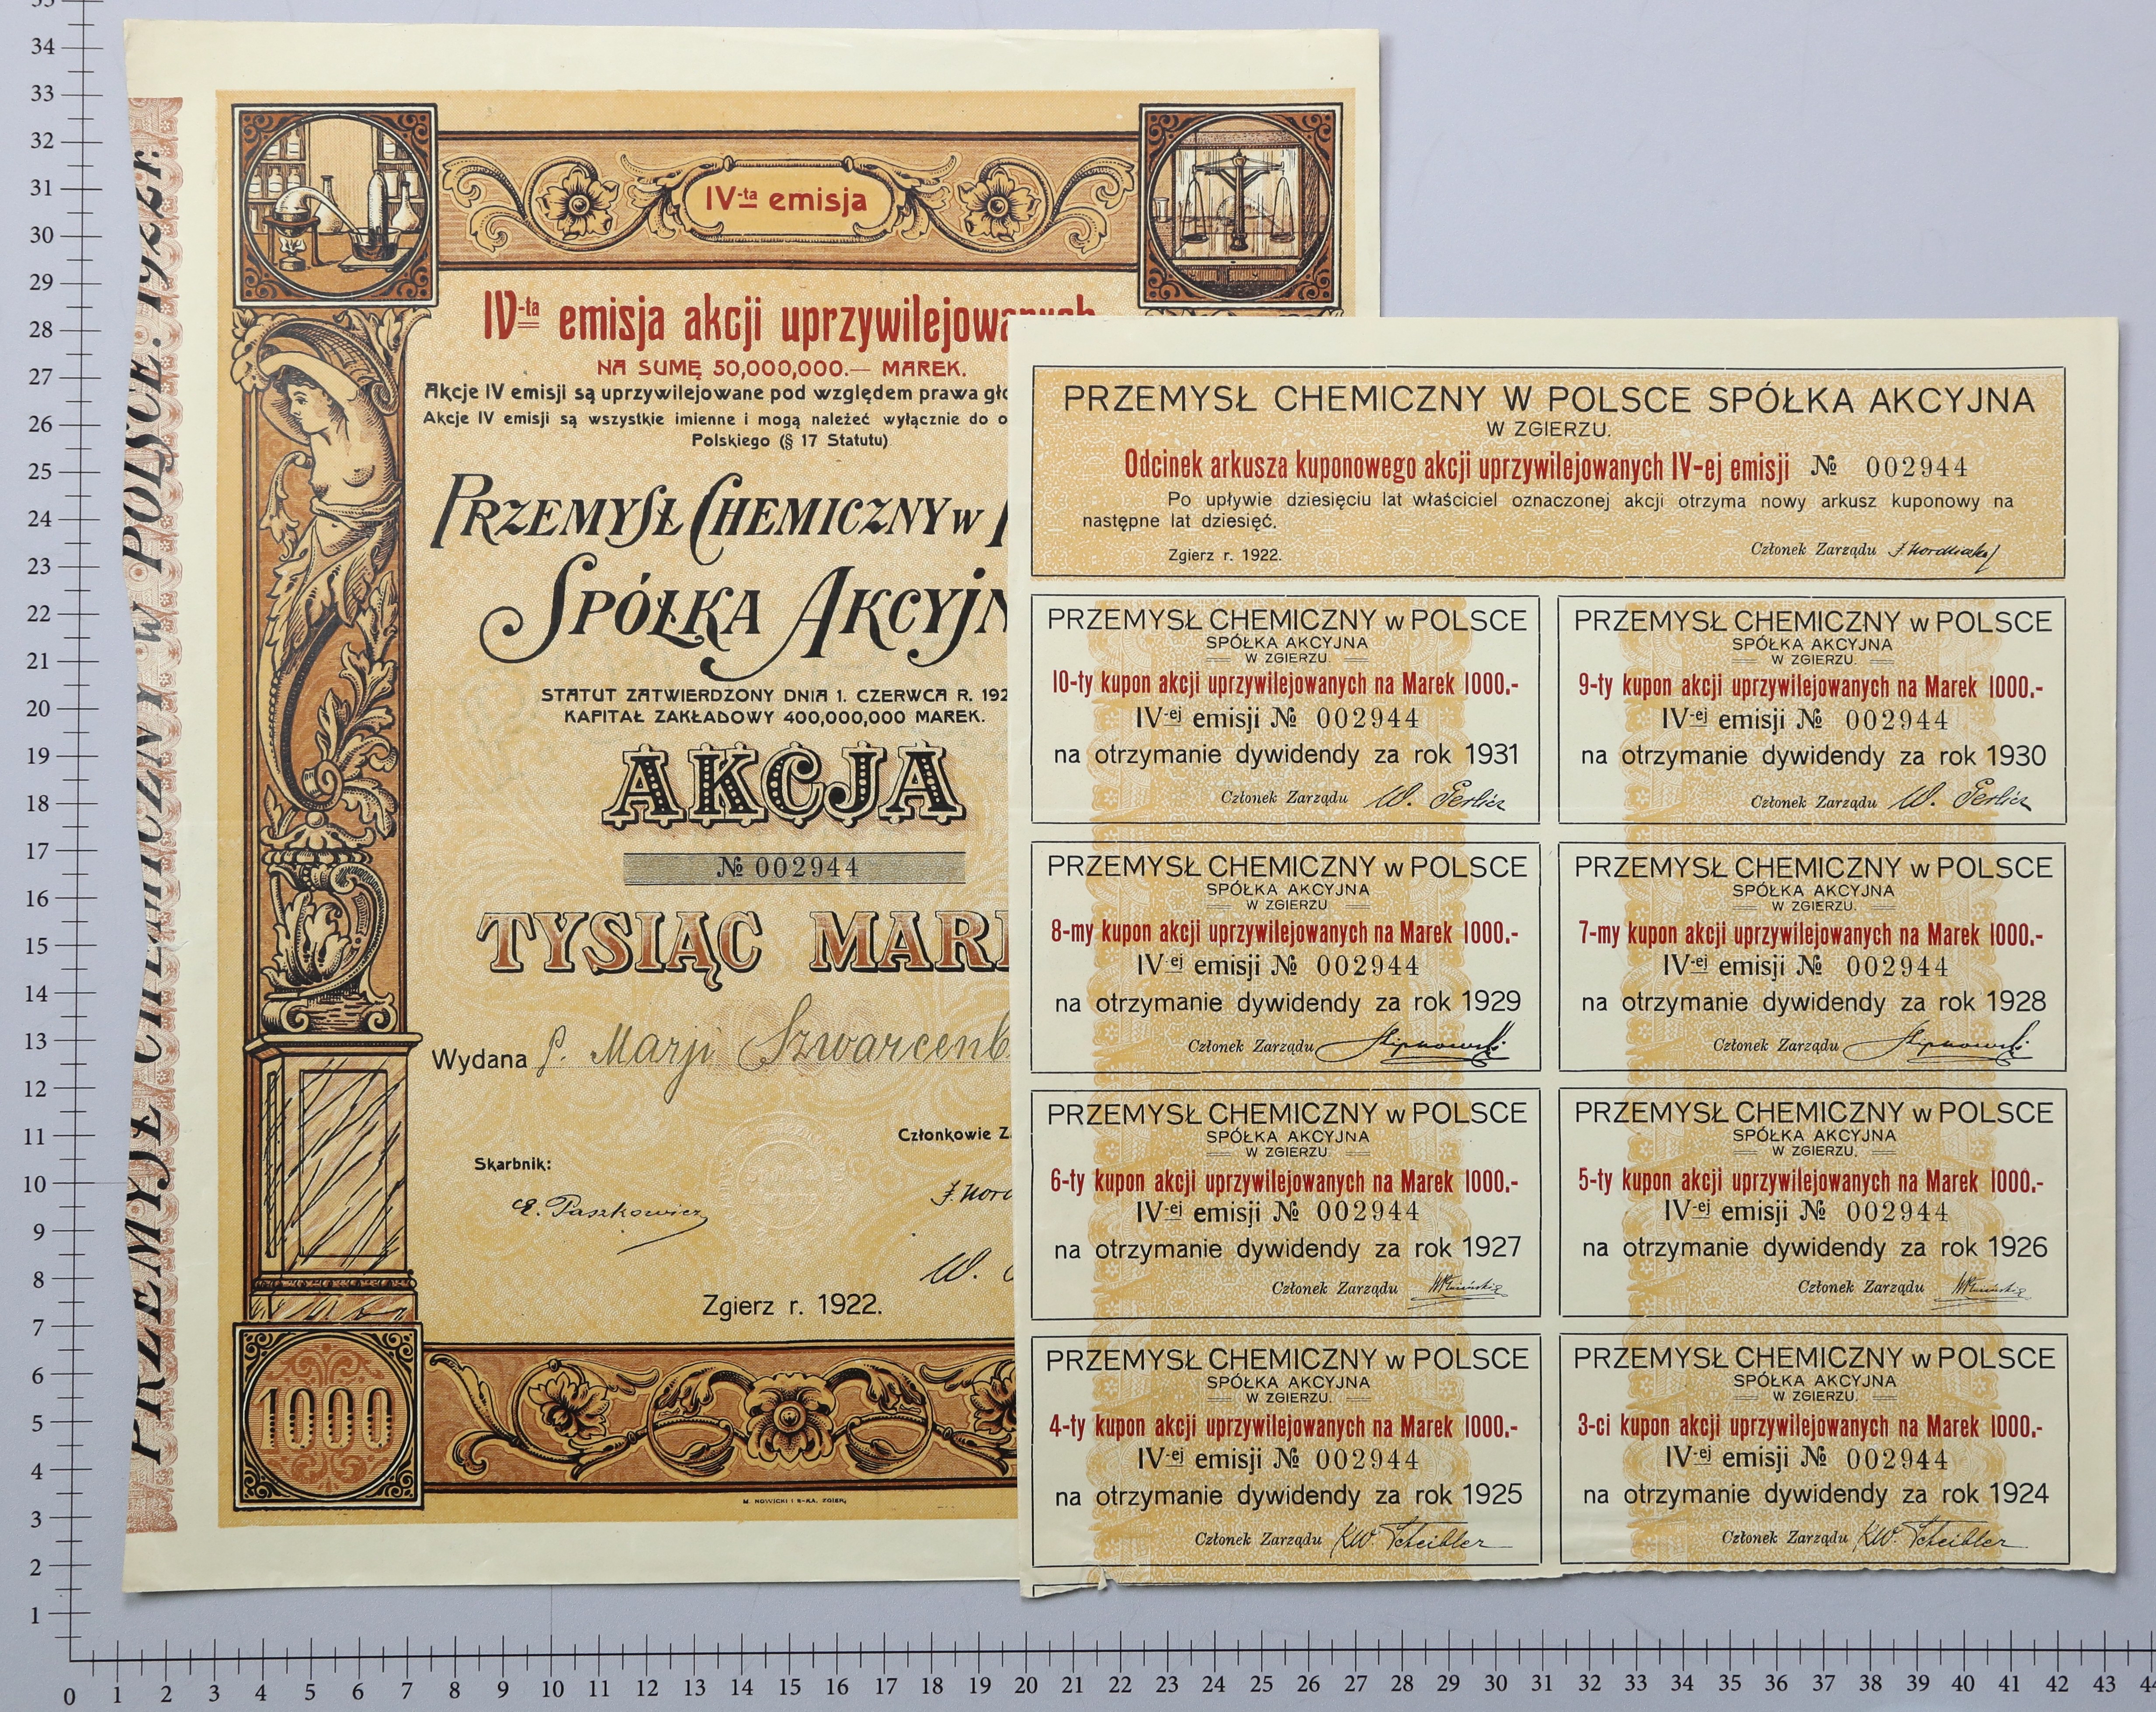 PRZEMYSŁ CHEMICZNY W POLSCE. 1922 r.
IV-ta emisja
IV-ta emisja akcji
NA SUMĘ 50,000,000.— MAREK.
Akcje IV emisji są uprzywilejowane pod względem prawa
Akcje IV emisji są wszystkie imienne i mogą należeć wyłącznie do
Polskiego (§ 17 Statutu)
PRZEMYSŁ CHEMICZNY W
SPÓŁKA
STATUT ZATWIERDZONY DNIA 1. CZERWCA R.
KAPITAŁ ZAKŁADOWY 400,000,000 MAREK.
AKCJA
№ 002944
TYSIĄC
Wydana P. Marji
Członkowie
Skarbnik:
E. Paszkowicz
W.
Zgierz r. 1922.
1000
M. NOWICKI I S-KA, ZGIERZ
PRZEMYSŁ CHEMICZNY W POLSCE SPÓŁKA AKCYJNA
W ZGIERZU.
Odcinek arkusza kuponowego akcji uprzywilejowanych IV-ej emisji № 002944
Po upływie dziesięciu lat właściciel oznaczonej akcji otrzyma nowy arkusz kuponowy na
następne lat dziesięć.
Zgierz r. 1922.
Członek Zarządu
PRZEMYSŁ CHEMICZNY w POLSCE
SPÓŁKA AKCYJNA
W ZGIERZU.
10-ty kupon akcji uprzywilejowanych na Marek 1000.-
IV-ej emisji № 002944
na otrzymanie dywidendy za rok 1931
Członek Zarządu W. Gerlicz
PRZEMYSŁ CHEMICZNY w POLSCE
SPÓŁKA AKCYJNA
W ZGIERZU.
9-ty kupon akcji uprzywilejowanych na Marek 1000.-
IV-ej emisji № 002944
na otrzymanie dywidendy za rok 1930
Członek Zarządu W. Gerlicz
PRZEMYSŁ CHEMICZNY w POLSCE
SPÓŁKA AKCYJNA
W ZGIERZU.
8-my kupon akcji uprzywilejowanych na Marek 1000.-
IV-ej emisji № 002944
na otrzymanie dywidendy za rok 1929
Członek Zarządu
PRZEMYSŁ CHEMICZNY w POLSCE
SPÓŁKA AKCYJNA
W ZGIERZU.
7-my kupon akcji uprzywilejowanych na Marek 1000.-
IV-ej emisji № 002944
na otrzymanie dywidendy za rok 1928
Członek Zarządu
PRZEMYSŁ CHEMICZNY w POLSCE
SPÓŁKA AKCYJNA
W ZGIERZU.
6-ty kupon akcji uprzywilejowanych na Marek 1000.-
IV-ej emisji № 002944
na otrzymanie dywidendy za rok 1927
Członek Zarządu
PRZEMYSŁ CHEMICZNY w POLSCE
SPÓŁKA AKCYJNA
W ZGIERZU.
5-ty kupon akcji uprzywilejowanych na Marek 1000.-
IV-ej emisji № 002944
na otrzymanie dywidendy za rok 1926
Członek Zarządu
PRZEMYSŁ CHEMICZNY w POLSCE
SPÓŁKA AKCYJNA
W ZGIERZU.
4-ty kupon akcji uprzywilejowanych na Marek 1000.-
IV-ej emisji № 002944
na otrzymanie dywidendy za rok 1925
Członek Zarządu KW. Scheibler
PRZEMYSŁ CHEMICZNY w POLSCE
SPÓŁKA AKCYJNA
W ZGIERZU.
3-ci kupon akcji uprzywilejowanych na Marek 1000.-
IV-ej emisji № 002944
na otrzymanie dywidendy za rok 1924
Członek Zarządu KW. Scheibler
34
33
32
31
30
29
28
27
26
25
24
23
22
21
20
19
18
17
16
15
14
13
12
11
10
9
8
7
6
5
4
3
2
1
0 1 2 3 4 5 6 7 8 9 10 11 12 13 14 15 16 17 18 19 20 21 22 23 24 25 26 27 28 29 30 31 32 33 34 35 36 37 38 39 40 41 42 43